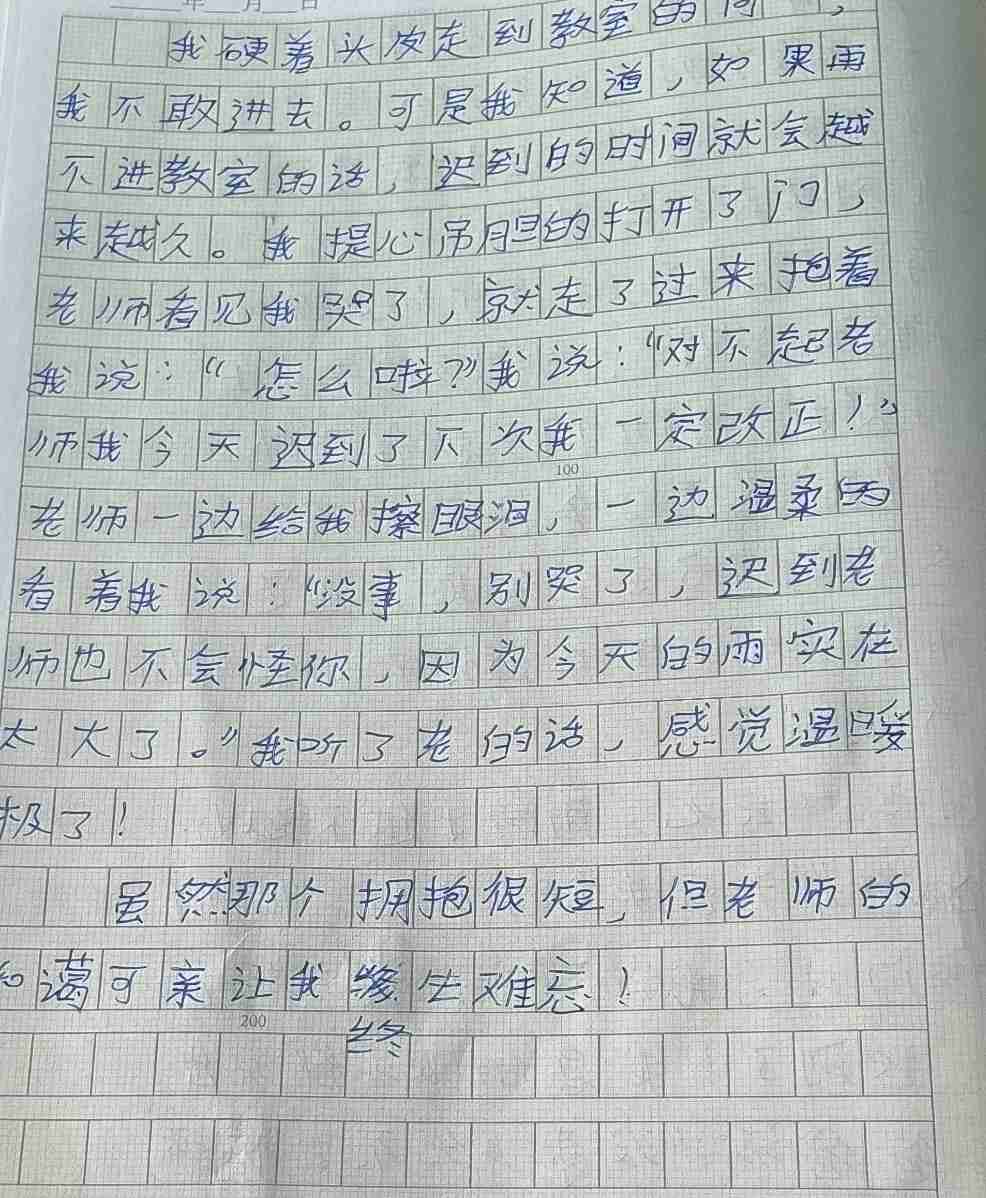 年 月 日
我硬着头皮走到教室的门，
我不敢进去。可是我知道，如果再
不进教室的话，迟到的时间就会越
来越久。我提心吊胆的打开了门，
老师看见我哭了，就走了过来抱着
我说：“怎么啦？”我说：“对不起老
师我今天迟到了下次我一定改正！”
100
老师一边给我擦眼泪，一边温柔的
看着我说：“没事，别哭了，迟到老
师也不会怪你，因为今天的雨实在
太大了。”我听了老的话，感觉温暖
极了！
虽然那个拥抱很短，但老师的
和蔼可亲让我终生难忘！
200
终